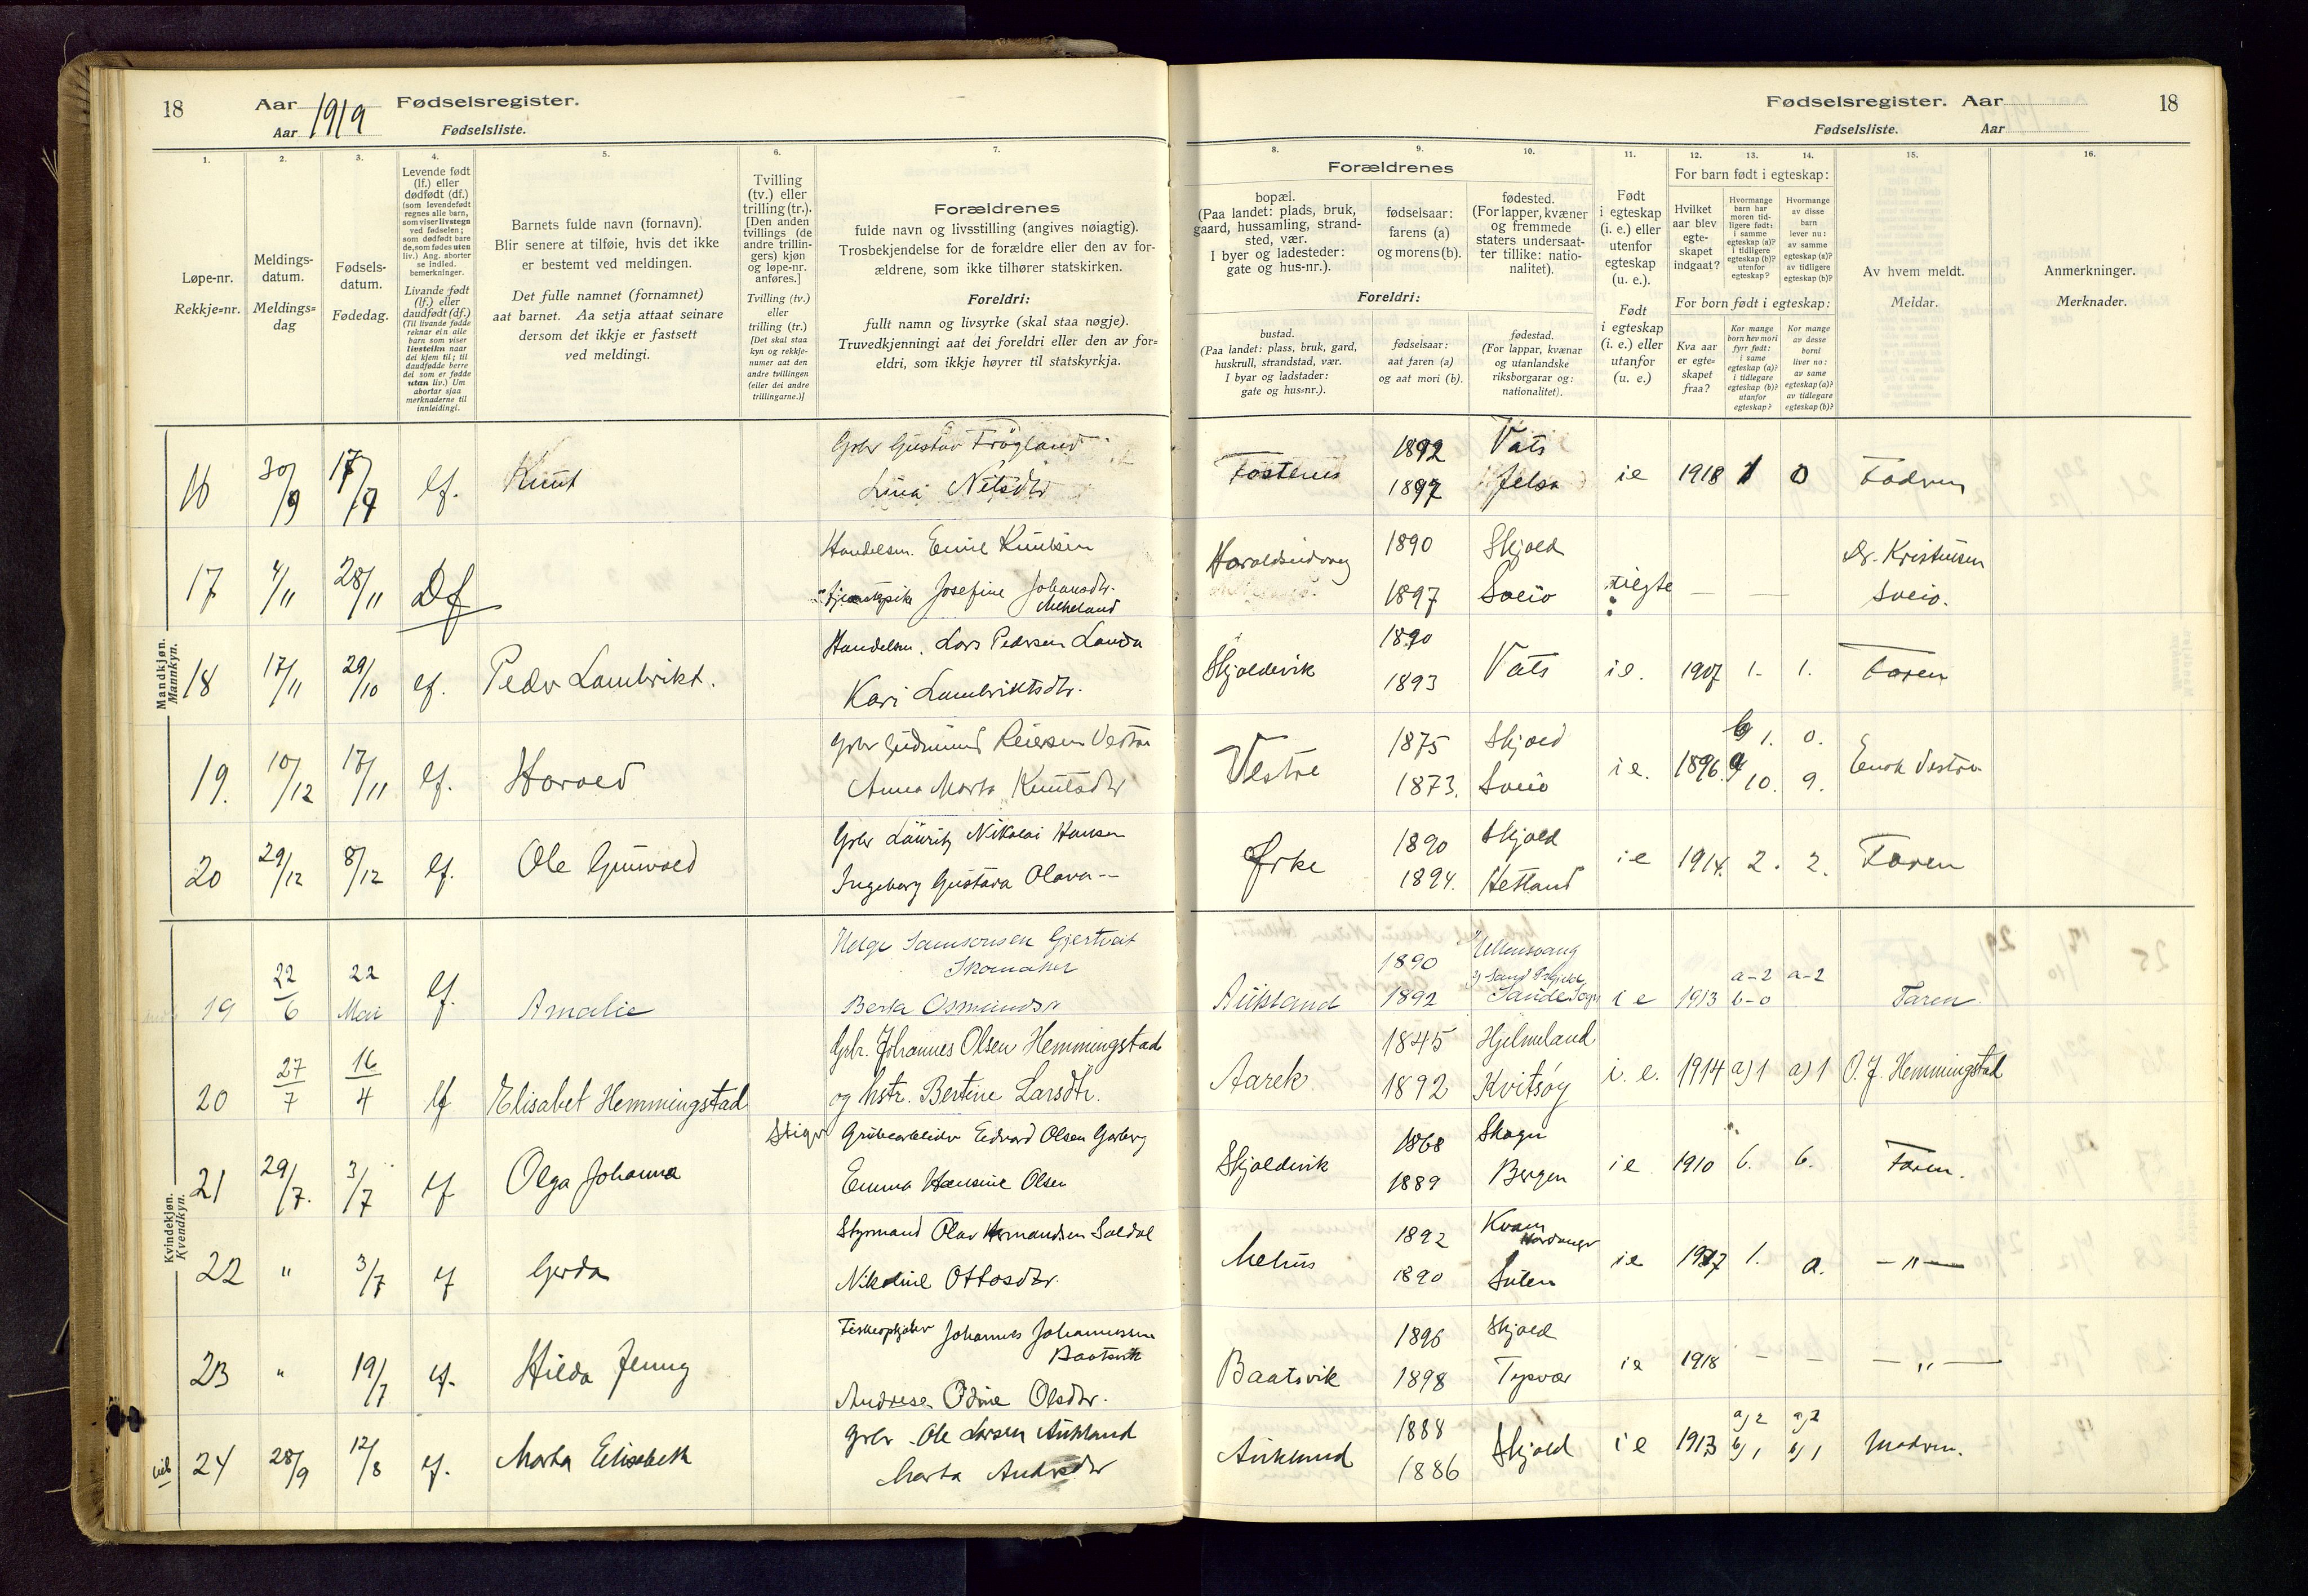 18 Aar 1919 Fødselsregister.
Aar Fødselsliste.
Fødselsregister. Aar 18
Fødselsliste. Aar
1. 2. 3. 4. 5. 6. 7.
Løpe-nr.
Rekkje=nr.
Meldings-
datum.
Meldings=
dag
Fødsels-
datum.
Fødedag.
Levende født
(lf.) eller
dødfødt (df.)
(som levendefødt
regnes alle barn,
som viser livstegn
ved fødselen;
som dødfødt bare
de, som fødes uten
liv.) Ang. aborter
se indled.
bemerkninger.
Livande født
(lf.) eller
daudfødt (df.)
(Til livande fødde
reknar ein alle
barn som viser
livsteikn naar
dei kjem til; til
daudfødde berre
dei som er fødde
utan liv.) Um
abortar sjaa
merknaderne til
innleidingi.
Barnets fulde navn (fornavn).
Blir senere at tilføie, hvis det ikke
er bestemt ved meldingen.
Det fulle namnet (fornamnet)
aat barnet. Aa setja attaat seinare
dersom det ikkje er fastsett
ved meldingi.
Tvilling
(tv.) eller
trilling (tr.).
[Den anden
tvillings (de
andre trillin-
gers) kjøn
og løpe-nr.
anføres.]
Tvilling (tv.)
eller
trilling (tr.)
[Det skal staa
kyn og rekkje-
numer aat den
andre tvillingen
(eller dei andre
trillingarne.)]
Forældrenes
fulde navn og livsstilling (angives nøiagtig).
Trosbekjendelse for de forældre eller den av for-
ældrene, som ikke tilhører statskirken.
Foreldri:
fullt namn og livsyrke (skal staa nøgje).
Truvedkjenningi aat dei foreldri eller den av for=
eldri, som ikkje høyrer til statskyrkja.
8. 9. 10. 11. 12. 13. 14. 15. 16.
Forældrenes
bopæl.
(Paa landet: plads, bruk,
gaard, hussamling, strand-
sted, vær.
I byer og ladesteder:
gate og hus-nr.).
fødselsaar:
farens (a)
og morens (b).
fødested.
(For lapper, kvæner
og fremmede
staters undersaat-
ter tillike: natio-
nalitet).
Foreldri:
bustad.
(Paa landet: plass, bruk, gard,
huskrull, strandstad, vær.
I byar og ladstader:
gate og hus=nr.).
fødselsaar:
aat faren (a)
og aat mori (b).
fødestad.
(For lappar, kvænar
og utanlandske
riksborgarar og:
nationalitet).
Født
i egteskap
(i. e.) eller
utenfor
egteskap
(u. e.).
Født
i egteskap
(i. e.) eller
utanfor
(u. e.)
For barn født i egteskap:
Hvilket
aar blev
egte-
skapet
indgaat?
Hvormange
barn har
moren tid-
ligere født:
i samme
egteskap (a)?
i tidligere
egteskap (b)?
utenfor
egteskap?
Hvormange
av disse
barn
lever nu:
av samme
egteskap (a)?
av tidligere
egteskap (b)?
For born født i egteskap:
Kva aar
er egte=
skapet
fraa?
Kor mange
born hev mori
fyrr født:
i same
egteskap (a)?
i tidlegare
egteskap (b)?
utanfor
egteskap?
Kor mange
av desse
borni
liver no:
av same
egteskap (a)?
av tidlegare
egteskap (b)?
Av hvem meldt.
Meldar.
Anmerkninger.
Merknader.
Mandkjøn.
Mannkyn.
16 30/9 17/9 lf. Knut Gbr Gustav Frøgland Vats
Lina Nilsdtr
1892
1897 Jelsa ie 1918 1 0 Fadren
17 4/11 28/11 Df Handelsm. Emil Knutsen
Josefine Johansdtr. Meheland
Haraldseidvaag 1890 Skjold
1897 Sveio uegte Dr. Kristensen
Sveio.
18 17/11 29/10 lf. Peder Lambrikt. Handelsm. Lars Pedersen Landa
Kari Lambriktsdtr.
Skjoldevik 1890
1893 Vats ie. 1907 1. 1. Faren
19. 10/12 17/11 lf. Harald Gbr Gudmund Reiersen Vestre
Anna Marta Knutsdtr
Vestre 1875 Skjold b 1. 0.
1873. Sveio ie. 1896. a 10. 9. Enok Vestre
20 29/12 8/12 lf. Ole Gunvald Gbr Lauritz Nikolai Hansen
Ingeborg Gustava Olava --
Ørke 1890 Skjold
1894. Hetland ie 1914. 2. 2. Faren
Kvindekjøn.
Kvendkyn.
19 22/6 22 Mai lf. Amalie Helge Samsonsen Gjertveit
Skomaker
Berta Osmundsdtr
Aukland 1890 Ullensvang
1892 Sande Sogn ie 1913 a-2 b-0 a-2 Faren
20 27/7 16/4 lf Elisabet Hemmingstad Gbr. Johannes Olsen Hemmingstad
og hstr. Bertine Larsdtr.
Aarek. 1845 Hjelmeland
1892 Kvitsøy i. e. 1914 a) 1 a) 1 O. J. Hemmingstad
21 29/7. 3/7 lf Olga Johanna Grubearbeider Edvard Olsen Garberg
Emma Hansine Olsen
Skjoldevik 1868 Skogn
1889 Bergen ie 1910 6. 6. Faren.
22 " 3/7 lf Gerda Styrmand Olav Hermandsen Soldal
Nikoline Ottosdtr.
Mehus 1892 Kvam Hardanger
1890 ie 1917 1. 0. -"-
23 " 19/7 lf. Hilda Jenny Fiskeopkjøber Johannes Johannessen
Baatsvik
Andrea Odine Olsdtr.
Baatsvik 1896 Skjold
1898 Tysvær ie 1918 - - -"-
24 28/9 12/8 lf. Marta Elisabeth Gbr Ole Larsen Aukland
Marta Andersdtr
Aukland 1888
1886 Skjold ie 1913 a) 2 b) 1 a) 2 b) 1 Modren.